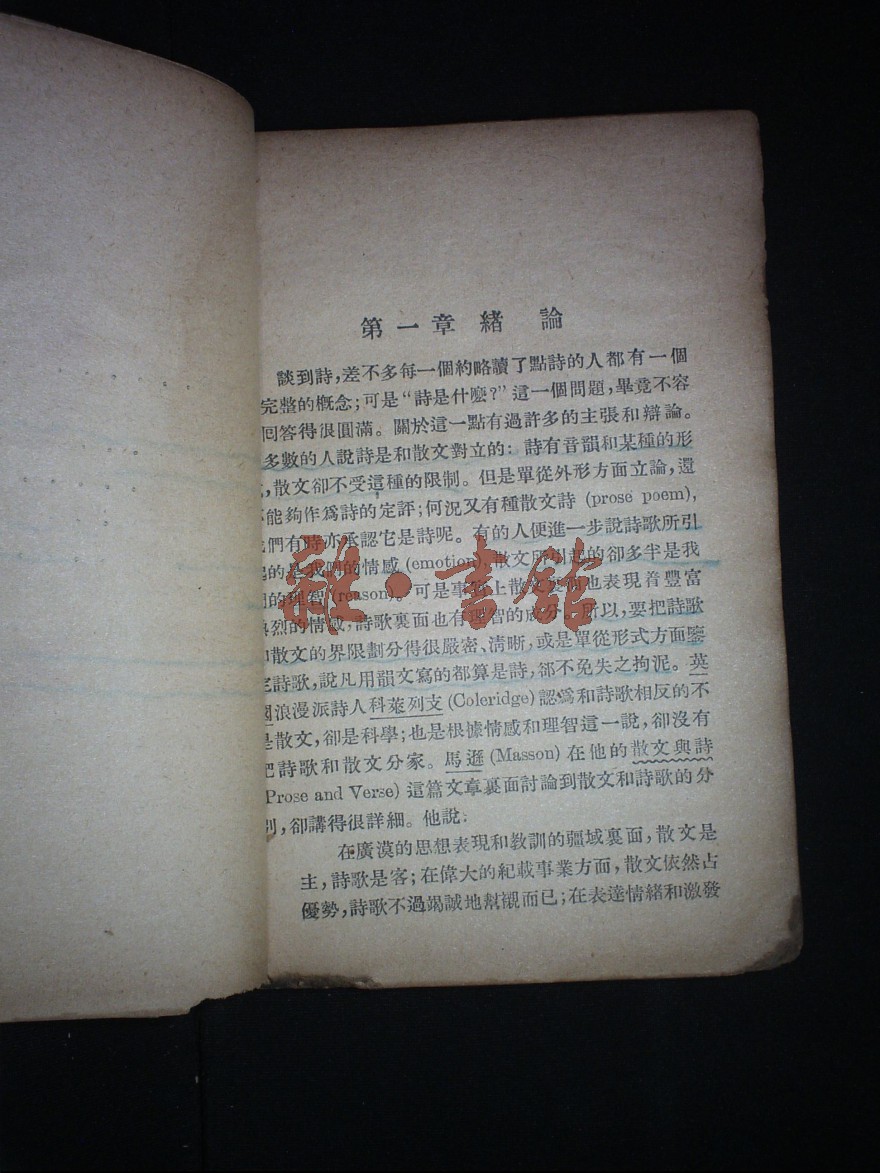 第一章 緒 論
談到詩,差不多每一個約略讀了點詩的人都有一個
完整的槪念;可是“詩是什麼?”這一個問題,畢竟不容
回答得很圓滿。關於這一點有過許多的主張和辯論。
多數的人說詩是和散文對立的:詩有音韻和某種的形
,散文卻不受這種的限制。但是單從外形方面立論,還
能夠作爲詩的定評;何況又有種散文詩 (prose poem),
們有時亦承認它是詩呢。有的人便進一步說詩歌所引
的是我們的情感 (emotion), 散文所引起的卻多半是我
的理智 (reason)。可是事實上散文裏面也表現着豐富
烈的情感,詩歌裏面也有理智的成分。所以,要把詩歌
散文的界限劃分得很嚴密、清晰,或是單從形式方面鑒
定詩歌,說凡用韻文寫的都算是詩,卻不免失之拘泥。英
國浪漫派詩人科萊列支 (Coleridge) 認爲和詩歌相反的不
是散文,卻是科學;也是根據情感和理智這一說,卻沒有
把詩歌和散文分家。馬遜 (Masson) 在他的散文與詩
Prose and Verse) 這篇文章裏面討論到散文和詩歌的分
別,卻講得很詳細。他說:
在廣漠的思想表現和教訓的疆域裏面,散文是
主,詩歌是客;在偉大的紀載事業方面,散文依然占
優勢,詩歌不過竭誠地幫襯而已;在表達情緒和激發
雜·書館